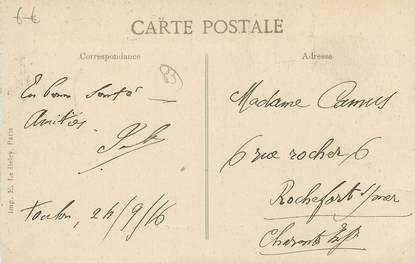 6 €
CARTE POSTALE
Correspondance
Adresse
83
En bonne santé
Amitiés
Toulon, 24/9/16
Madame Camus
6 rue rocher 6
Rochefort s/mer
Charente Inf
Imp. E. Le Deley, Paris